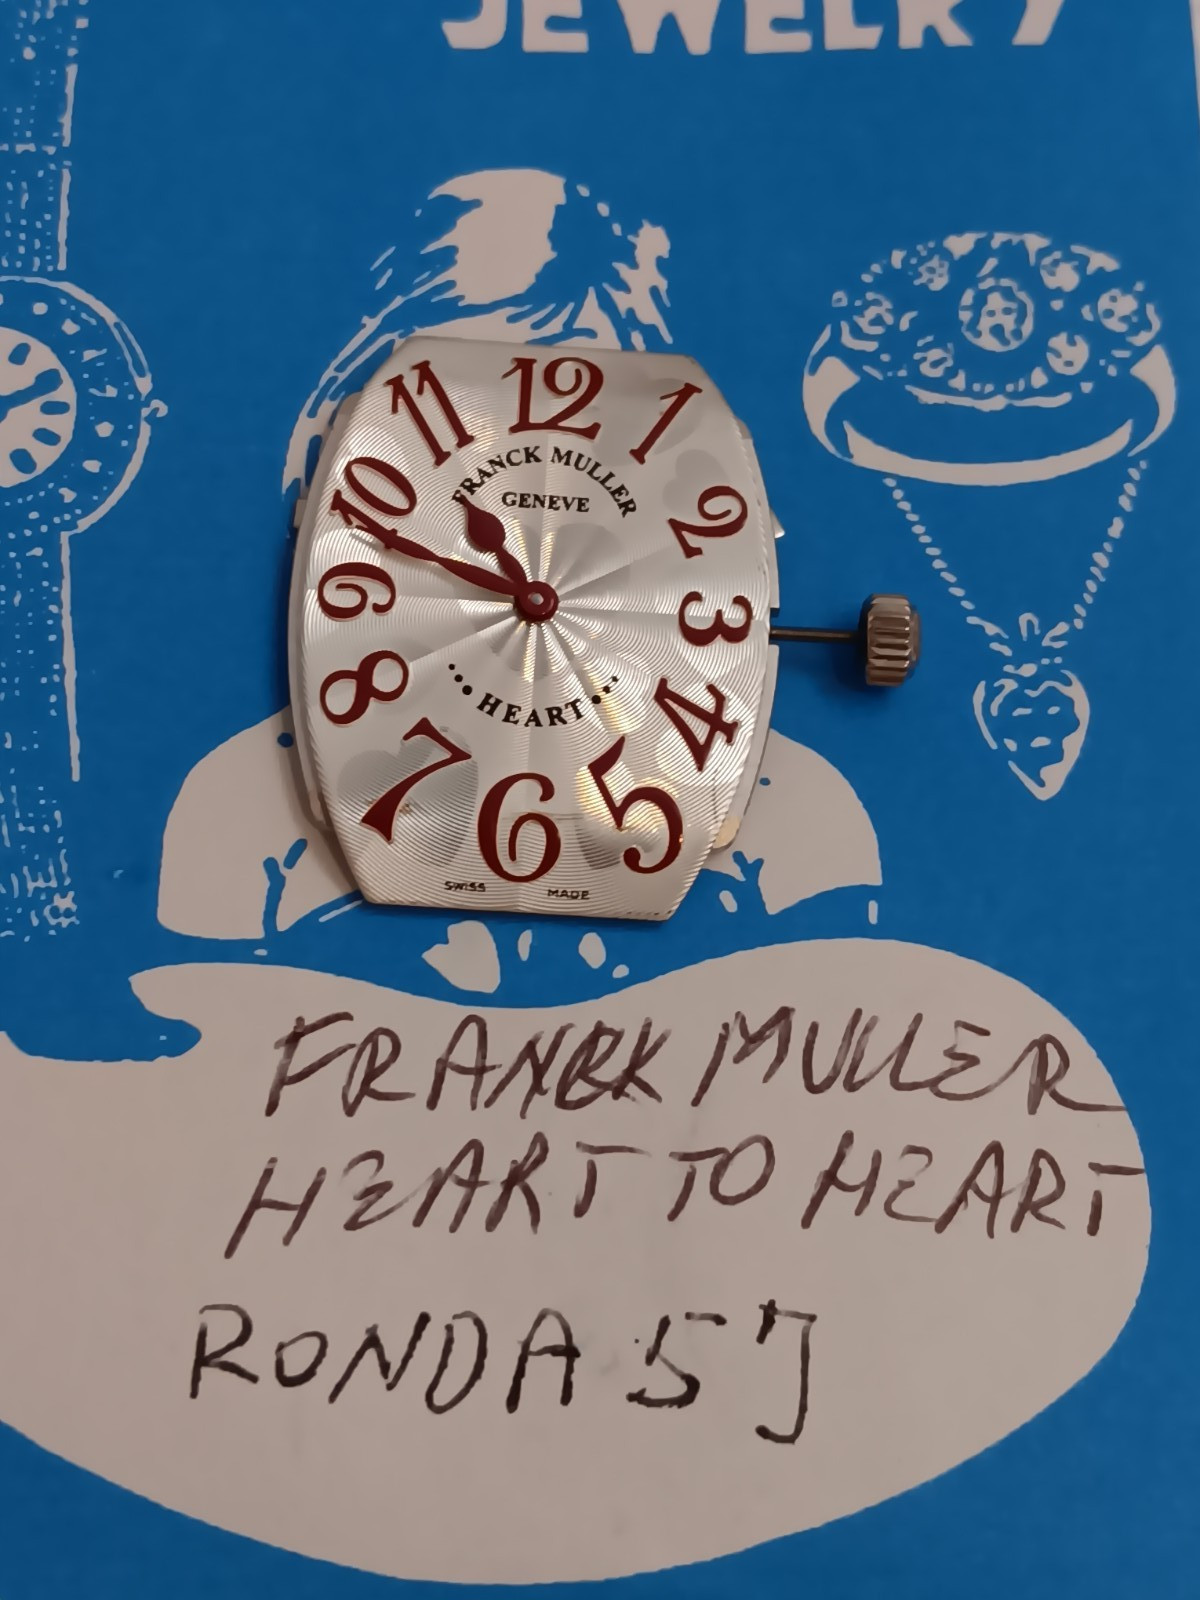 JEWELRY
11 12 1
FRANCK MULLER
10 GENEVE 2
9 3
HEART
8 4
7 6 5
SWISS MADE
FRANCK MULLER
HEART TO HEART
RONDA 5 J